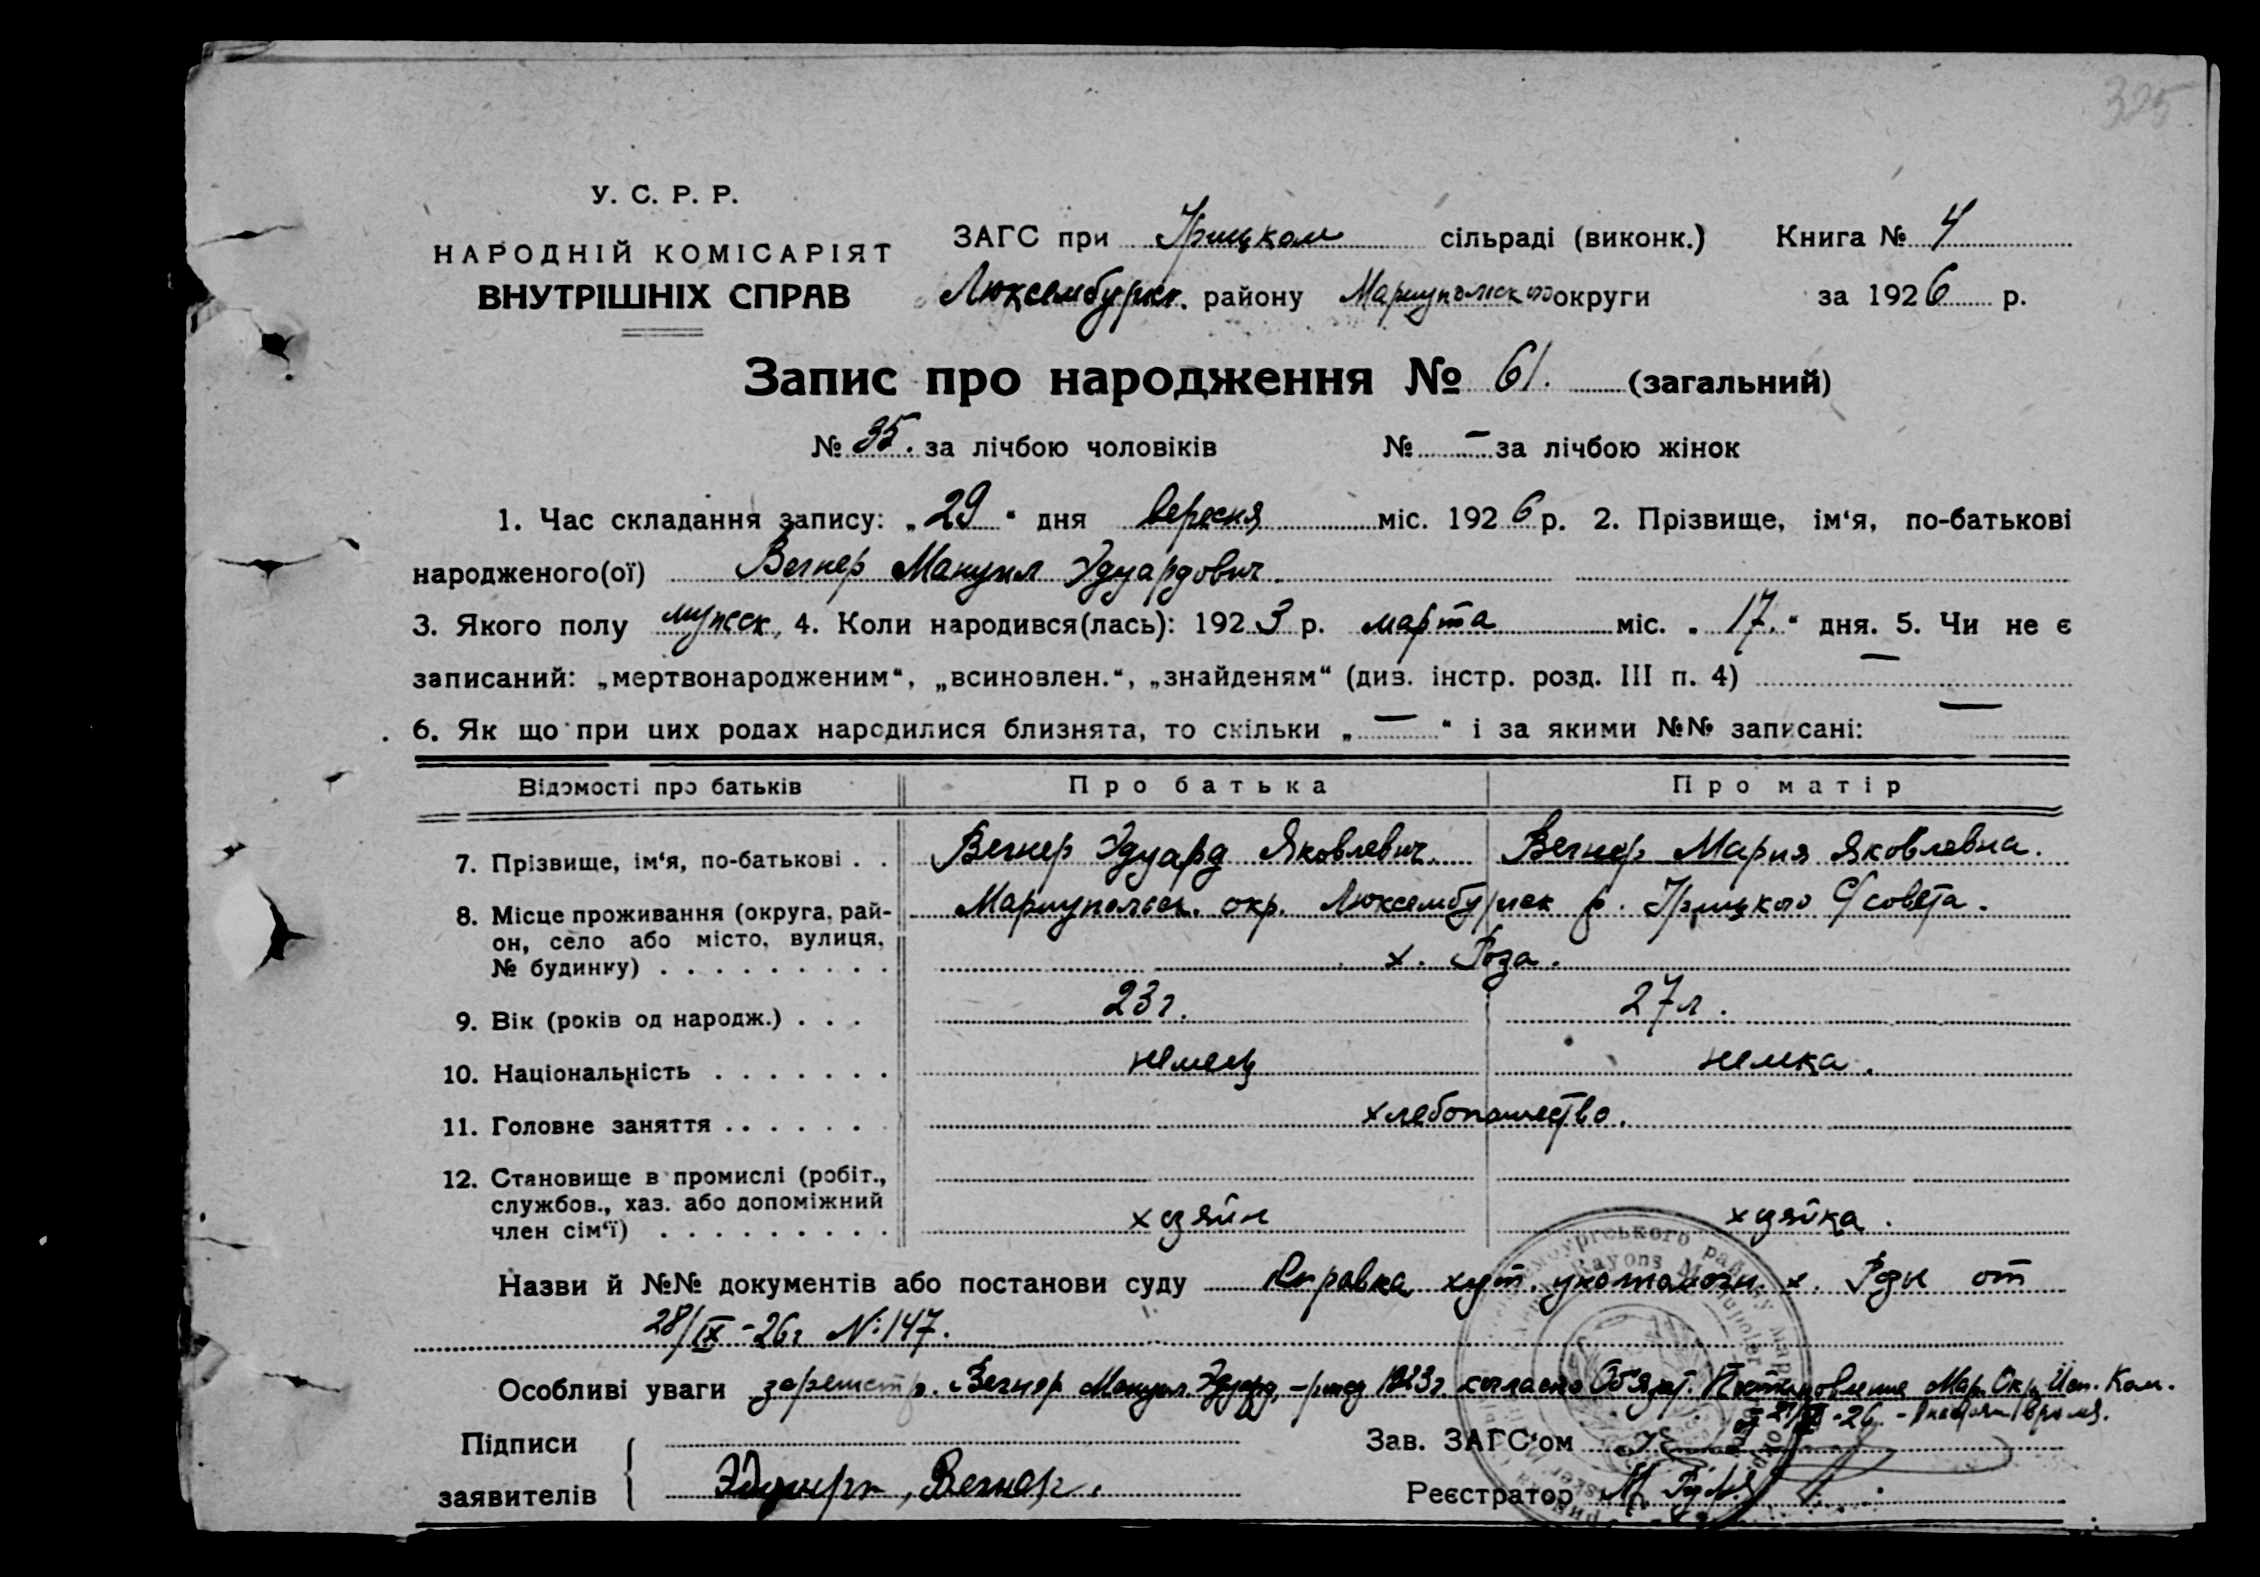 325
У. С. Р. Р.
НАРОДНІЙ КОМІСАРІЯТ
ВНУТРІШНІХ СПРАВ
ЗАГС при Урицком сільраді (виконк.) Книга № 4
Люксембургск. району Мариупольског округи за 1926 р.
Запис про народження № 61. (загальний)
№ 35. за лічбою чоловіків № — за лічбою жінок
1. Час складання запису: „29“ дня вересня міс. 1926 р. 2. Прізвище, ім‘я, по-батькові
народженого(ої) Вегнер Мануил Эдуардович.
3. Якого полу мужск. 4. Коли народився(лась): 1923 р. марта міс. „17.“ дня. 5. Чи не є
записаний: „мертвонародженим“, „всиновлен.“, „знайденям“ (див. інстр. розд. III п. 4) —
6. Як що при цих родах народилися близнята, то скільки „—“ і за якими №№ записані: —
Відомості про батьків Про батька Про матір
7. Прізвище, ім‘я, по-батькові . . Вегнер Эдуард Яковлевич. Вегнер Мария Яковлевна.
8. Місце проживання (округа, рай- Мариупольск. окр. Люксембургск р. Урицкого С/совета.
он, село або місто, вулиця,
№ будинку) . . . . . . . . . х. Роза.
9. Вік (років од народж.) . . . 23 г. 27 л.
10. Національність . . . . . . . немец немка.
11. Головне заняття . . . . . . хлебопашество.
12. Становище в промислі (робіт.,
службов., хаз. або допоміжний
член сім‘ї) . . . . . . . . . хозяйн хозяйка.
Назви й №№ документів або постанови суду Справка хут. уполномочн. х. Розы от
28/IX-26 г № 147.
Особливі уваги зарегистр. Вегнер Мануил Эдуард. -рожд 1923 г. согласно Обязат. Постановление Мар. Окр. Исп. Ком.
-26
Підписи
заявителів Эдуард, Вегнер.
Зав. ЗАГС‘ом
Реєстратор